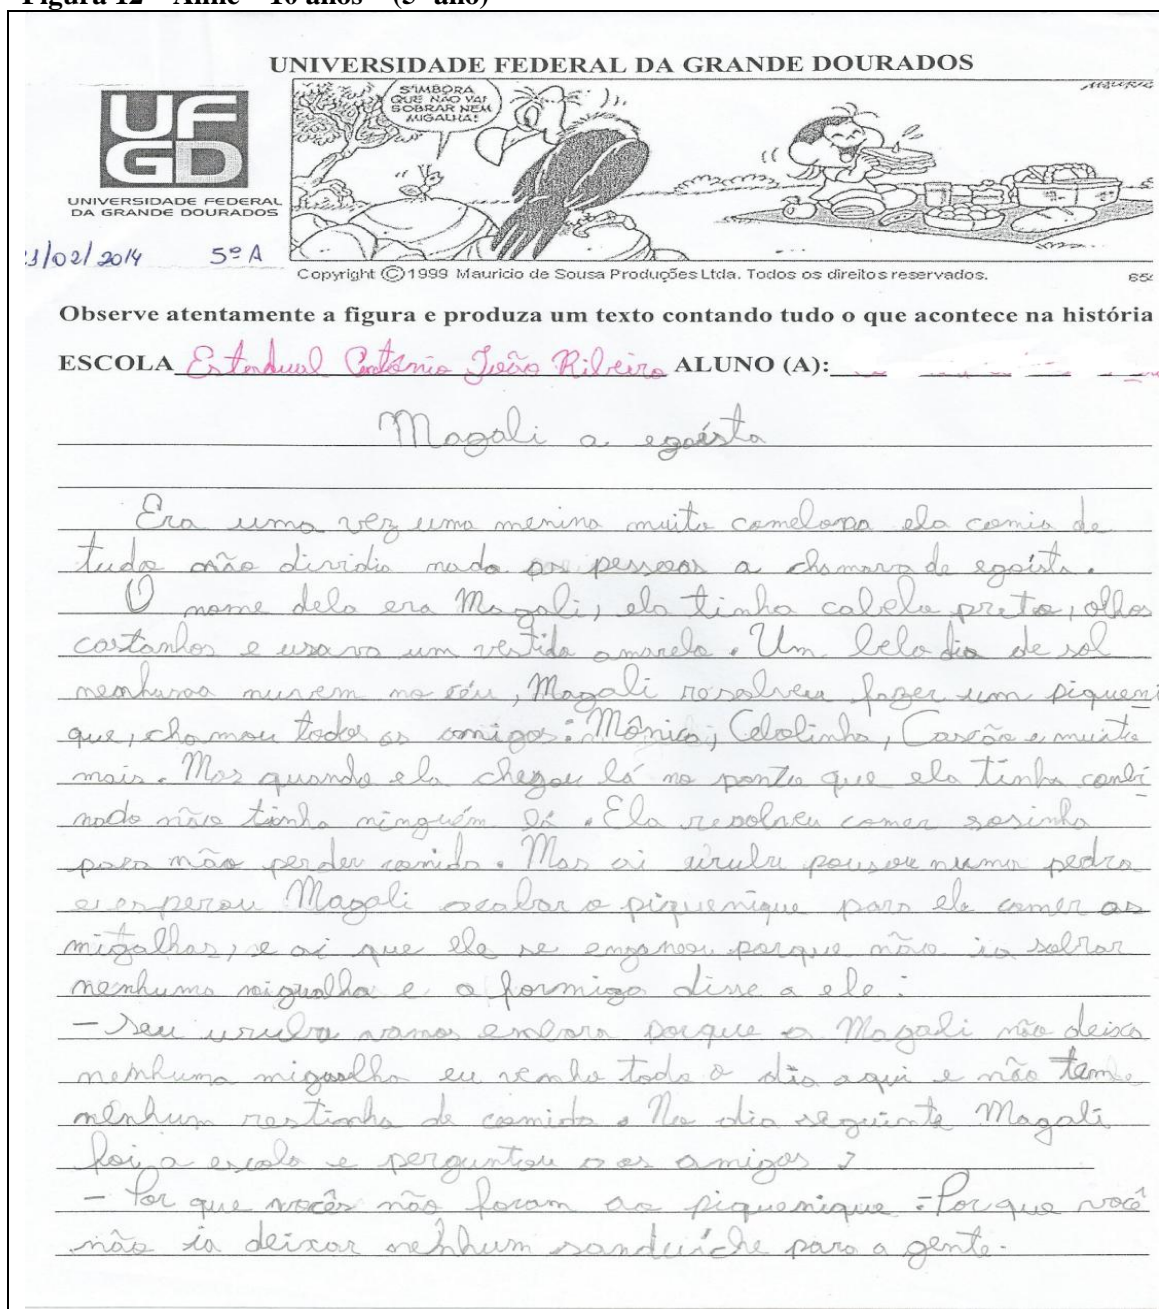 Figura 12 – Anne – 10 anos – (5º ano)
UNIVERSIDADE FEDERAL DA GRANDE DOURADOS
UF
GD
UNIVERSIDADE FEDERAL
DA GRANDE DOURADOS
S'IMBORA
QUE NÃO VAI
SOBRAR NEM
MIGALHA!
/02/2014 5º A
Copyright ©1999 Mauricio de Sousa Produções Ltda. Todos os direitos reservados.
Observe atentamente a figura e produza um texto contando tudo o que acontece na história
ESCOLA Estadual Antônio João Ribeiro ALUNO (A):
Magali a egoísta
Era uma vez uma menina muito comelona ela comia de
tudo não dividia nada as pessoas a chamava de egoísta.
O nome dela era Magali, ela tinha cabelo preto, olhos
castanhos e usava um vestido amarelo. Um belo dia de sol
nenhuma nuvem no céu, Magali resolveu fazer um piqueni
que, chamou todos os amigos: Mônica, Cebolinha, Cascão e muito
mais. Mas quando ela chegou lá no ponto que ela tinha combi
nado não tinha ninguém lá. Ela resolveu comer sosinha
para não perder comida. Mas ai urubu pousou numa pedra
e esperou Magali acabar o piquenique para ele comer as
migalhas, e ai que ele se enganou porque não ia sobrar
nenhuma migualha e a formiga disse a ele:
- Seu urubu vamos embora porque a Magali não deixa
nenhuma migualha eu venho todo o dia aqui e não tem
nenhum restinho de comida. No dia seguinte Magali
foi a escola e perguntou a os amigos ?
- Por que vocês não foram ao piquenique - Porque você
não ia deixar nenhum sanduíche para a gente.